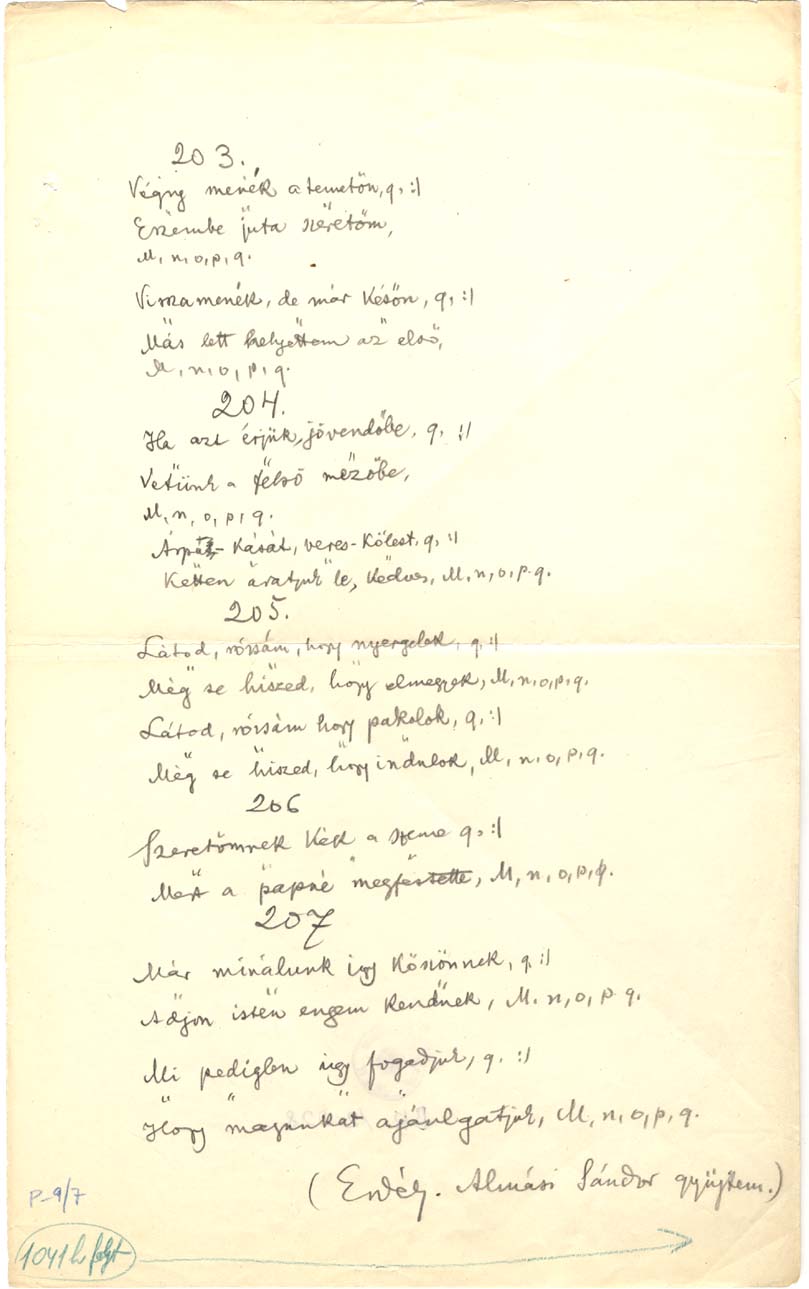 203.
Végig menék a temetön, q, :|
Eszembe juta szeretöm,
M, n, o, p, q.
Vissza menék, de már késön, q, :|
Más lett helyettem az elsö,
M, n, o, p, q.
204.
Ha azt érjük, jövendöbe, q, :|
Vetünk a felsö mezöbe,
M, n, o, p, q.
Árpát- kását, veres-kölest, q, :|
Ketten aratjuk le, kedves, M, n, o, p. q.
205.
Látod, rózsám, hogy nyergelek, q, :|
Még se hiszed, hogy elmegyek, M, n, o, p, q.
Látod, rózsám hogy pakolok, q, :|
Még se hiszed, hogy indulok, M, n, o, p, q.
206
Szeretömnek kék a szeme q, :|
Mert a papné megfestette, M, n, o, p, q.
207
Már minálunk igy köszönnek, q, :|
Adjon isten engem kendnek, M. n, o, p q.
Mi pediglen ugy fogadjuk, q. :|
Hogy magunkat ajánlgatjuk, M, n, o, p, q.
(Erdély. Almási Sándor gyüjtem.)
P-9/7
1041 h folyt